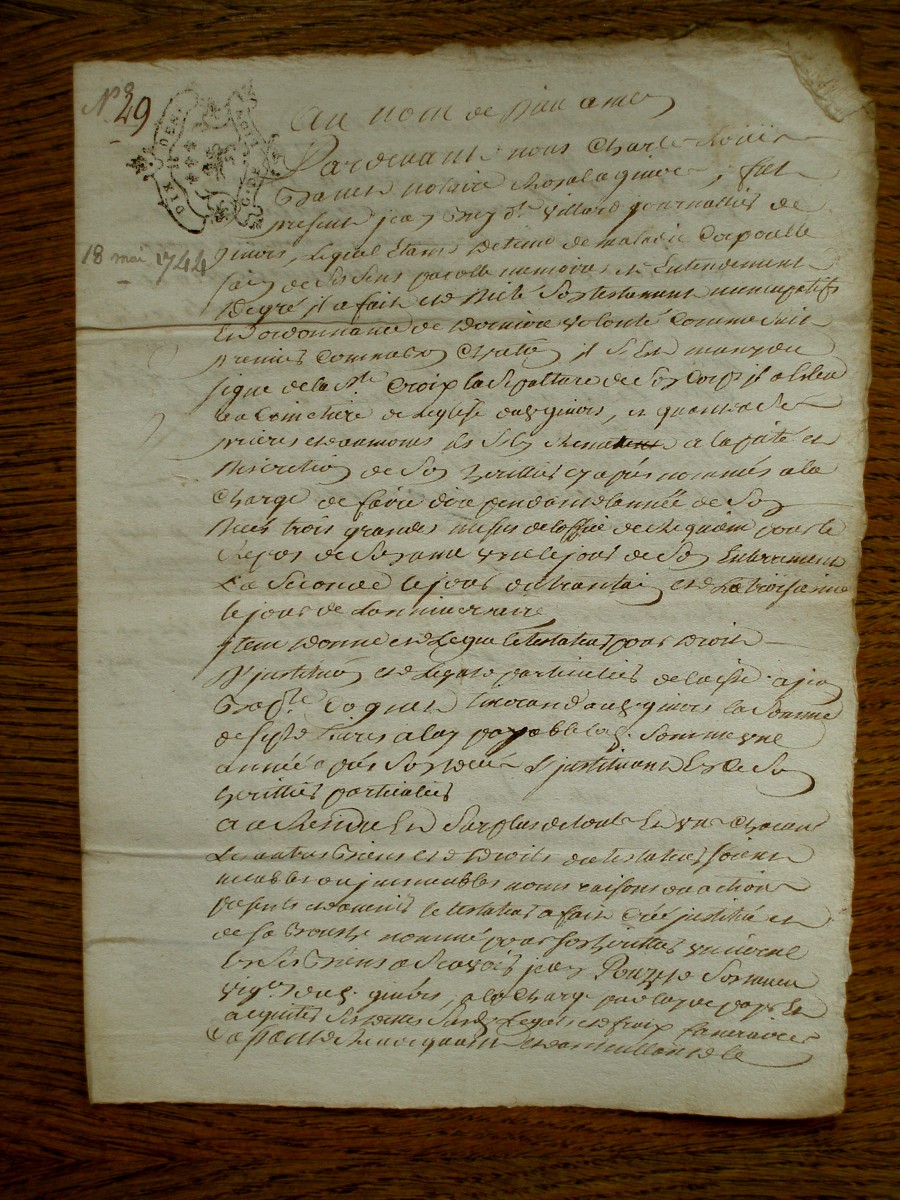 N° 49
18 mai 1744
Au nom de Dieu amen
Pardevant nous Charle
notaire Royal a givors, fut
present jean villard journallier de
givors, lequel Etant detenu de maladie Corporelle
sain de ses sens parolle memoire et Entendement
De gré il a fait et dicté son testament nuncupatif
Et ordonnance de derniere volonté Comme suit
premier Comme bon Chretien il s'est muny du
signe de la ste Croix la sepulture de son Corps il a Esleu
au Cimetiere de l'eglise dud. givors, et quant a ses
prieres et aumones il s'en a la pieté et
Discretion de son heritier cy apres nommé a la
Charge de faire dire pendant l'année de son
deces trois grandes messes de l'office de Requiem pour le
Repos de son ame une le jour de son Enterrement
La seconde le jour du trantain et la troisieme
le jour de l'anniversaire
Item donne et legue le testateur pour droit
D'institution et legats particulier a jean
la somme
de sept livres a luy payable lad. somme une
année apres son deces l'instituant En ce son
heritier particulier
Et au Residu Et surplus de tous Et un Chacun
Les autres biens et droits du testateur soient
meubles ou immeubles noms raisons ou actions
presents et avenir le testateur a fait Créé institué et
de sa bouche nommé pour son heritier universel
En ses biens a scavoir jean son neveu
vign. dud. givors, a la Charge par luy de payer Et
acquitter ses dettes legats et fraix funeraires